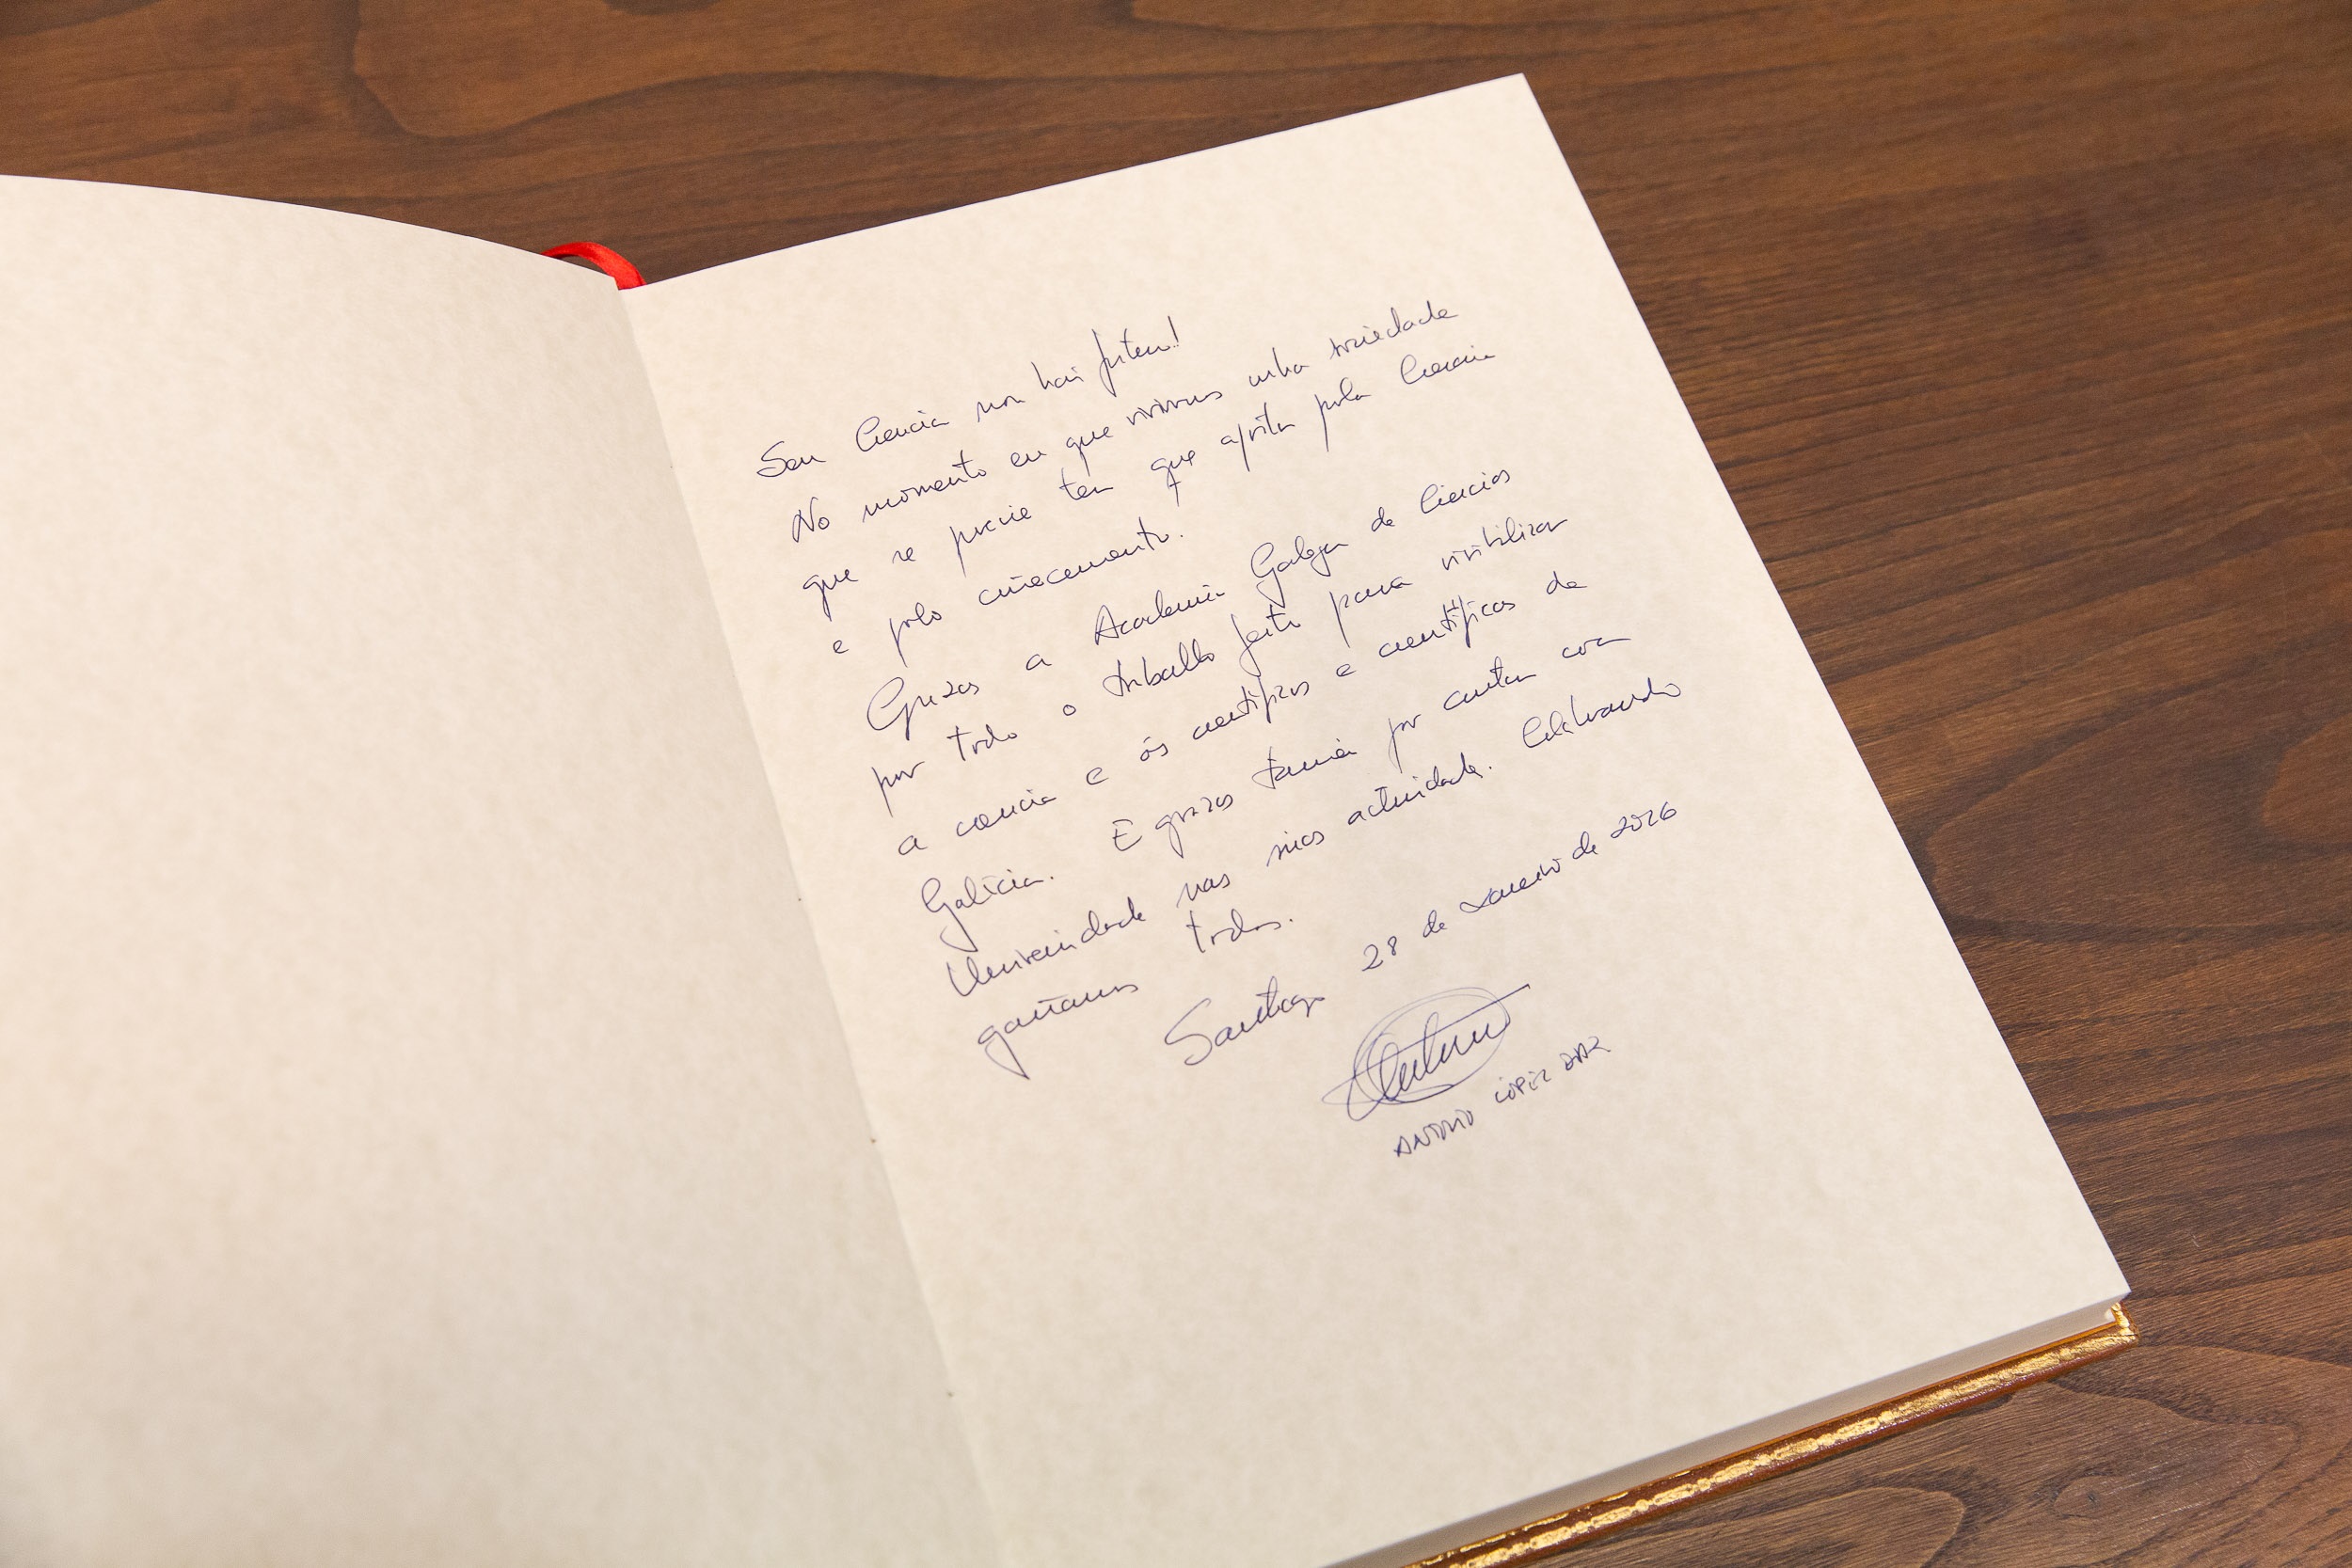 Sen Ciencia non hai futuro!
No momento en que vivimos unha sociedade
que se precie ten que apostar pola Ciencia
e polo coñecemento.
Grazas a Academia Galega de Ciencias
por todo o traballo feito para visibilizar
a ciencia e ós científicos e científicas de
Galicia. E grazas tamén por contar coa
Universidade nas súas actividade. Colaborando
gañamos todos.
Santiago 28 de Xaneiro de 2026
Antonio
ANTONIO LÓPEZ DÍAZ